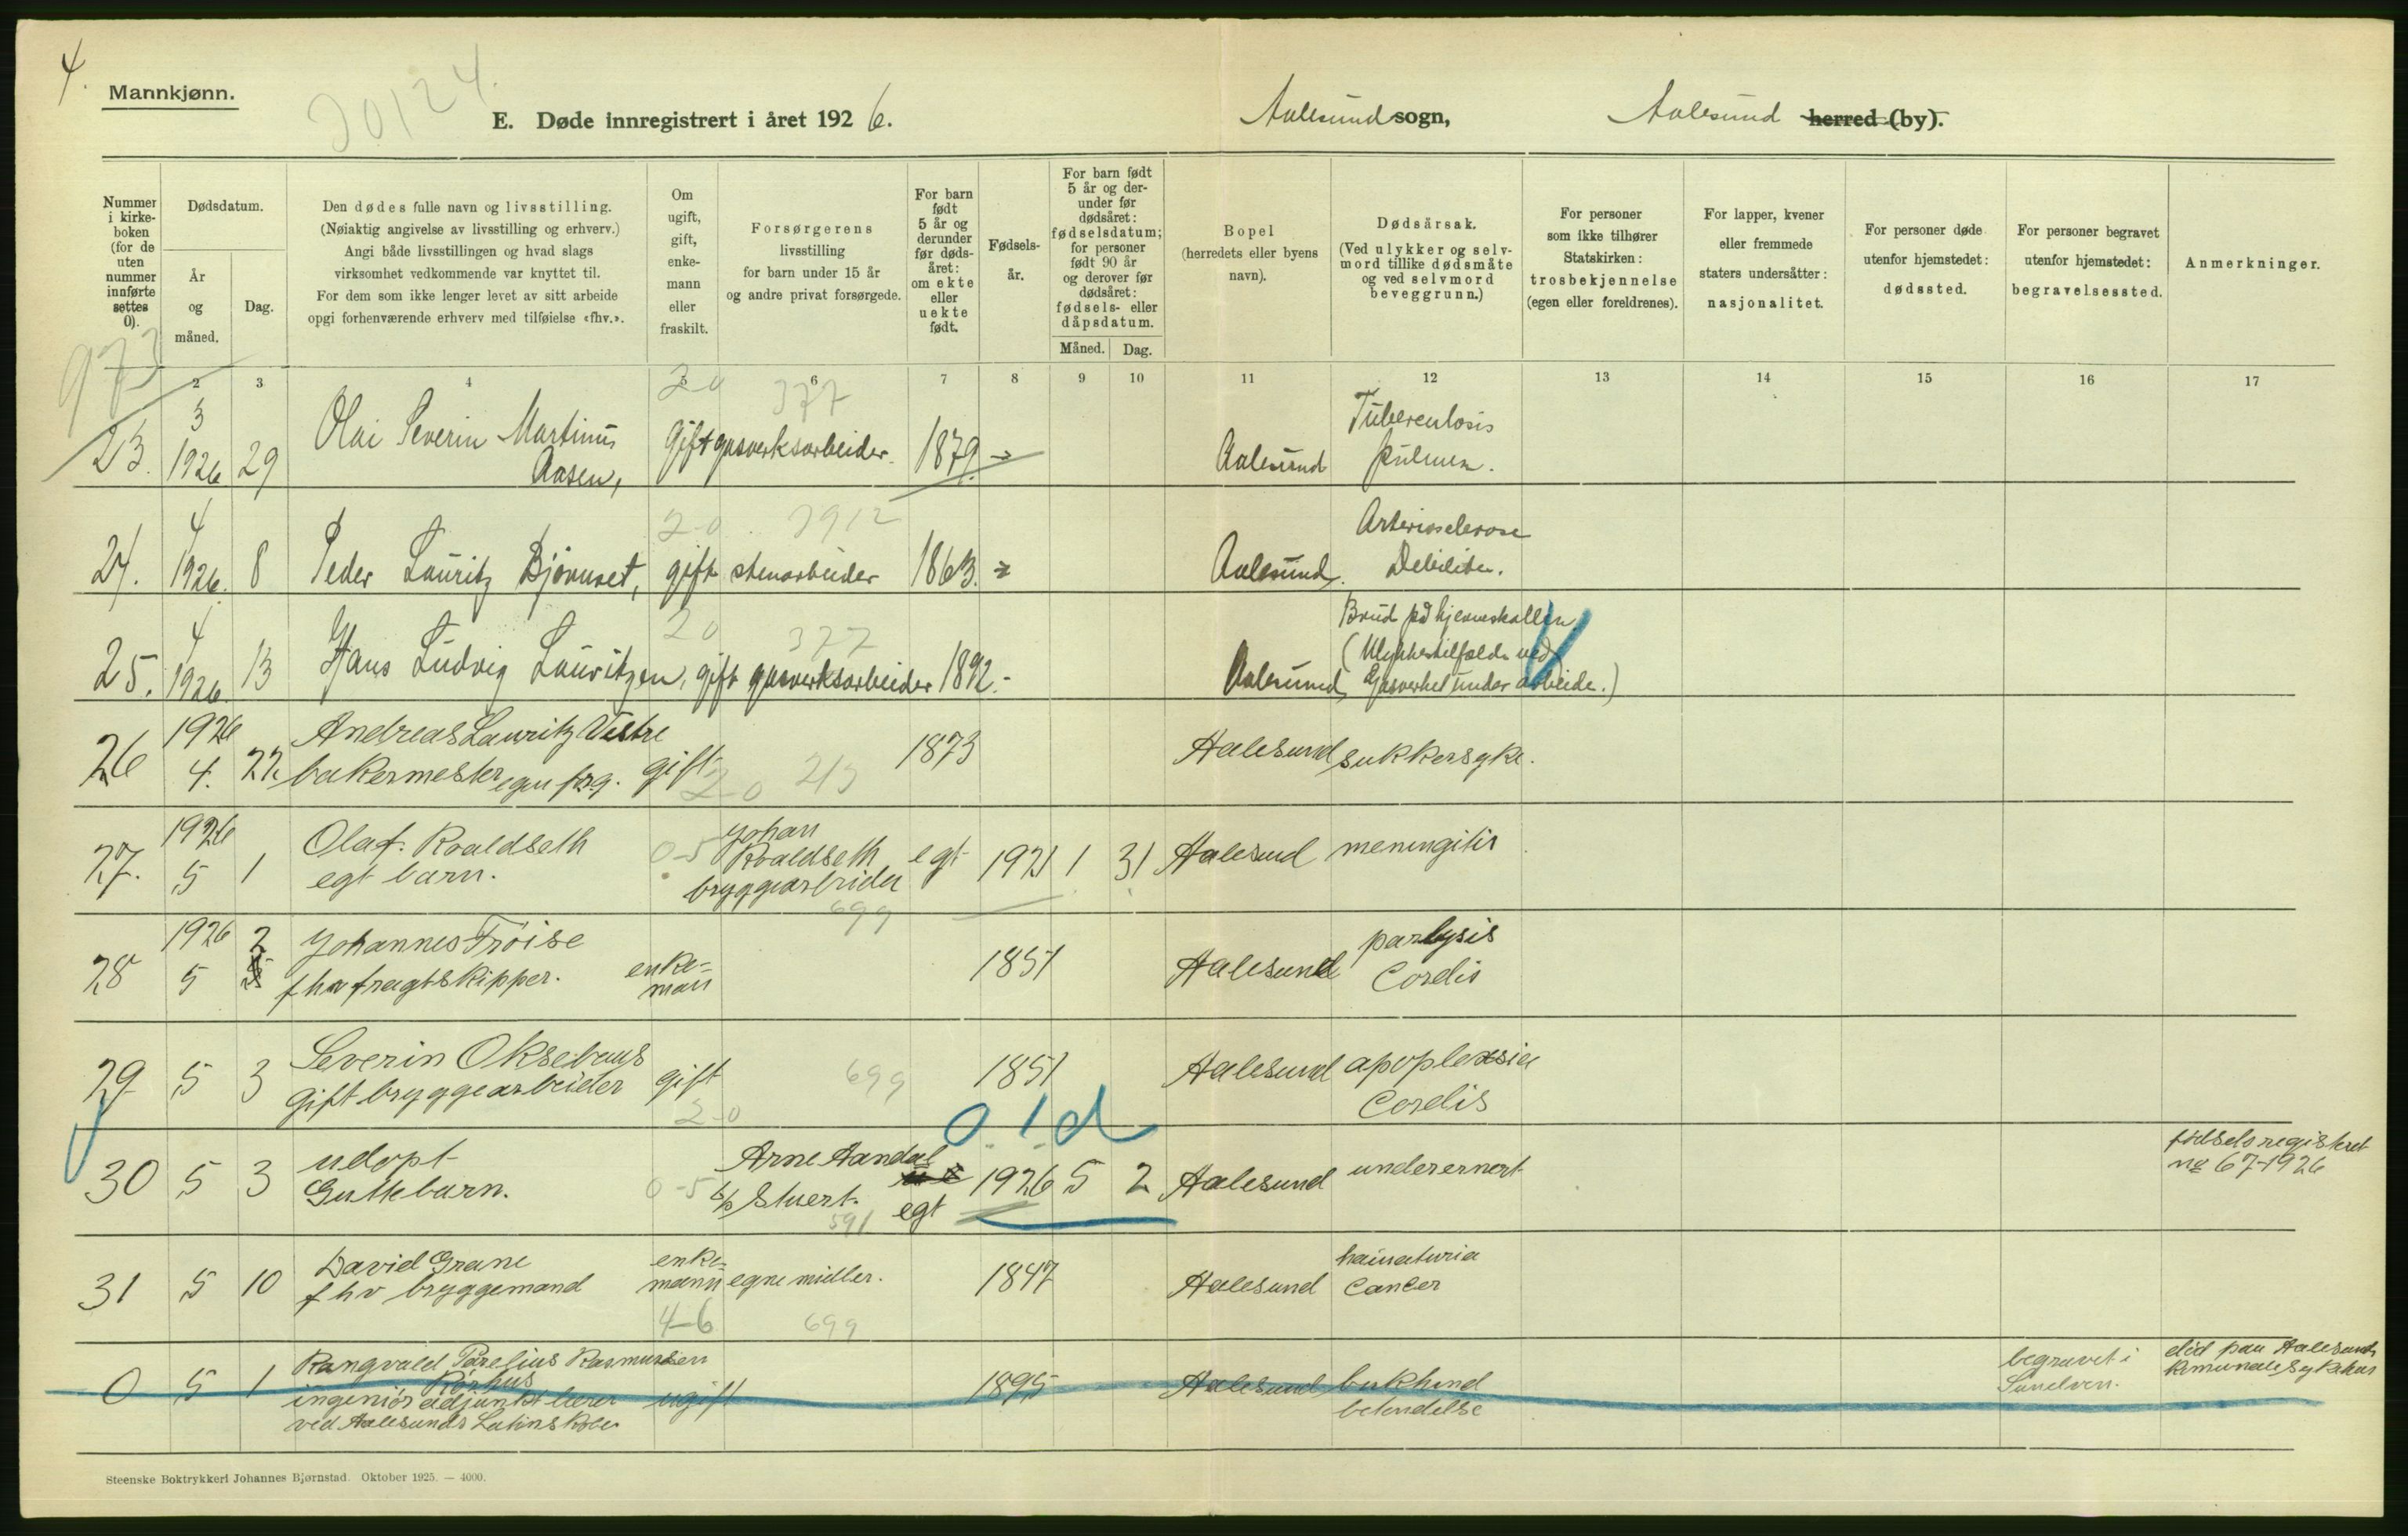 4.
Mannkjønn.
20124.
E. Døde innregistrert i året 1926.
Aalesund sogn,
Aalesund herred (by).
Nummer i kirkeboken (for de uten nummer innførte settes 0).
Dødsdatum.
År og måned.
Dag.
Den dødes fulle navn og livsstilling.
(Nøiaktig angivelse av livsstilling og erhverv.)
Angi både livsstillingen og hvad slags
virksomhet vedkommende var knyttet til.
For dem som ikke lenger levet av sitt arbeide
opgi forhenværende erhverv med tilføielse «fhv.».
Om ugift, gift, enkemann eller fraskilt.
Forsørgerens
livsstilling
for barn under 15 år
og andre privat forsørgede.
For barn født 5 år og derunder før dødsåret: om ekte eller uekte født.
Fødselsår.
For barn født 5 år og derunder før dødsåret: fødselsdatum; for personer født 90 år og derover før dødsåret: fødsels- eller dåpsdatum.
Måned. Dag.
Bopel
(herredets eller byens
navn).
Dødsårsak.
(Ved ulykker og selvmord tillike dødsmåte og ved selvmord beveggrunn.)
For personer
som ikke tilhører
Statskirken:
trosbekjennelse
(egen eller foreldrenes).
For lapper, kvener
eller fremmede
staters undersåtter:
nasjonalitet.
For personer døde
utenfor hjemstedet:
dødssted.
For personer begravet
utenfor hjemstedet:
begravelsessted.
Anmerkninger.
973
2 3 4 5 6 7 8 9 10 11 12 13 14 15 16 17
20 377
23. 3 1926 29 Olai Severin Martinus Aasen, Gift gasverksarbeider. 1879. Aalesund Tuberculosis pulmon.
20 2912
24. 4 1926. 8 Peder Lauritz Bjövnset, gift stenarbeider 1863. Aalesund. Arteriosclerose Debilitas.
20 377
25. 4 1926. 13 Hans Ludvig Lauritzen, gift gasverksarbeider 1892. Aalesund, Brud på hjerneskallen. (Ulykkestilfelde ved Gasverket under arbeide.)
26 1926 4. 22. Andreas Lauritz Vestre bakermester egen forg. gift 1873 Aalesund sukkersyke.
2-0 213
27. 1926 5 1 Olaf Roaldseth egt barn. 0-5 Johan Roaldseth bryggearbeider egt 1921 1 31 Aalesund meningitis
699
28 1926 5 2 Johannes Frøise fhv fragtskipper. enkeman 1851 Aalesund paralysis Cordis
29 5 3 Severin Oksehaug gift bryggearbeider gift 699 1851 Aalesund apoplexsia Cordis
2-0
0 1 d
30 5 3 udøpt Guttebarn. 0-5 Arne Aandal b/s Stuert. egt 1926 5 2 Aalesund underernert fødselsregisteret no 67-1926
591
31 5 10 David Grane fhv bryggemand enkemann egne midler. 1847 Aalesund haimaturia Cancer
4-6 699
0 5 1 Rangvald Parelius Rasmussen Rørhus ingeniør adjunkt lærer ved Aalesunds Latinskole ugift 1895 Aalesund bukhindbetendelse begravet i Sundven. død paa Aalesunds Komunale Sykehus
Steenske Boktrykkeri Johannes Bjørnstad. Oktober 1925. — 4000.